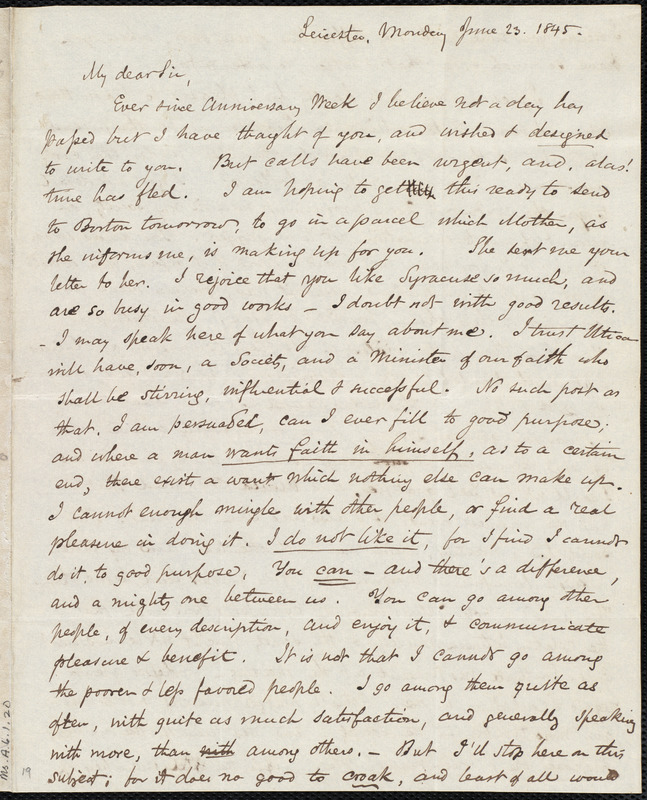 Leicester, Monday June 23. 1845.
My dear Sir,
Ever since Anniversary Week I believe not a day has
passed but I have thought of you, and wished & designed
to write to you. But calls have been urgent, and, alas!
time has fled. I am hoping to get this ready to send
to Boston tomorrow, to go in a parcel which Mother, as
she informs me, is making up for you. She sent me your
letter to her. I rejoice that you like Syracuse so much, and
are so busy in good works – I doubt not with good results.
– I may speak here of what you say about me. I trust Utica
will have, soon, a Society, and a Minister of our faith who
shall be stirring, influential & successful. No such post as
that, I am persuaded, can I ever fill to good purpose;
and where a man wants faith in himself, as to a certain
end, there exists a want which nothing else can make up.
I cannot enough mingle with other people, or find a real
pleasure in doing it. I do not like it, for I find I cannot
do it, to good purpose. You can – and there's a difference,
and a mighty one between us. You can go among other
people, of every description, and enjoy it, & communicate
pleasure & benefit. It is not that I cannot go among
the poorer & less favored people. I go among them quite as
often, with quite as much satisfaction, and generally speaking
with more, than with among others. – But I'll stop here on this
subject; for it does no good to croak, and least of all would
Ms. A.6.1.20
19